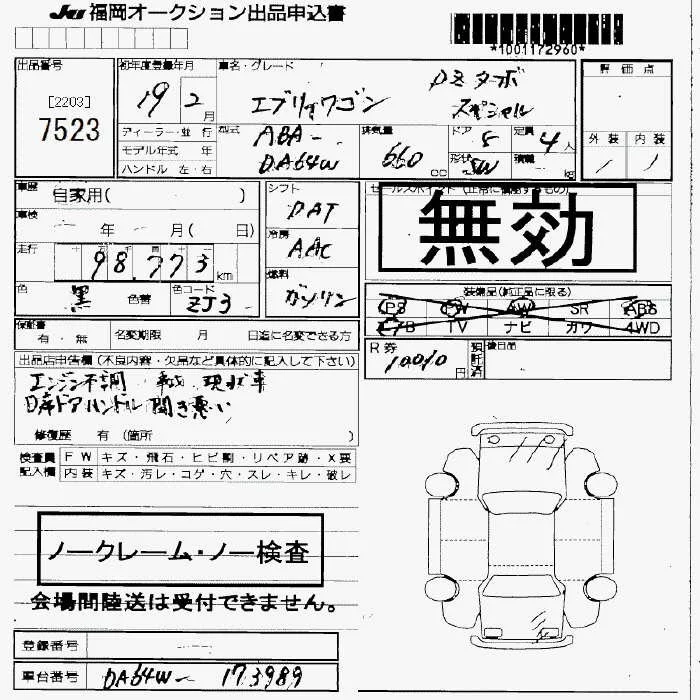 JU 福岡オークション出品申込書
*1001172960*
出品番号 [2203] 7523
初年度登録年月 19年 2月
車名・グレード エブリィワゴン PZターボスペシャル
評価点
外装 / 内装 /
ディーラー・並行
モデル年式 年
ハンドル 左・右
型式 ABA-DA64W
排気量 660 CC
ドア 5 形状 SW
定員 4人 積載 kg
車歴 自家用( )
車検 年 月( 日)
走行 98,773 km
色 黒 色番 色コード ZJ3
シフト DAT
冷房 AAC
燃料 ガソリン
セールスポイント(正常に機能するもの)
無効
装備品(純正品に限る)
PS PW AW SR ABS
エアB TV ナビ カワ 4WD
保証書 有・無 名変期限 月 日迄に名変できる方
R券 10010円 預託済 後日品
出品店申告欄(不良内容・欠品など具体的に記入して下さい)
エンジン不調 現状車
ドアハンドル 開き悪い
修復歴 有(箇所 )
検査員記入欄
FW キズ・飛石・ヒビ割・リペア跡・X要
内装 キズ・汚レ・コゲ・穴・スレ・キレ・破レ
ノークレーム・ノー検査
会場間陸送は受付できません。
登録番号
車台番号 DA64W-173989